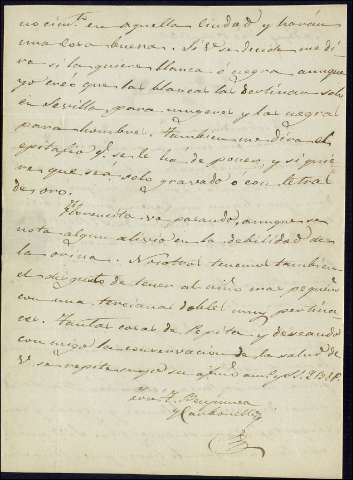 nocim.to en aquella Ciudad y harán
una cosa buena. Si V. se decide me di-
ra si la quiere blanca ó negra aunque
yo creo que las blancas las destinan solo
en Sevilla para mugeres y las negras
para hombres. Tambien me dira el
epitafio q.e se le há de poner, y si quie-
re que sea solo gravado ó con letras
de oro.
Florencita va pasando, aunque se
nota algun alivio en la debilidad de
la orina. Nosotros tenemos tambien
el disgusto de tener al niño mas pequeño
con una terciana doble muy pertina-
az. Tantas cosas de Pepita y deseando
conmigo la conservacion de la salud de
V. se repite suyo su af.mo am.g y S. S. Q. B. S. M.
José
y Carbonell